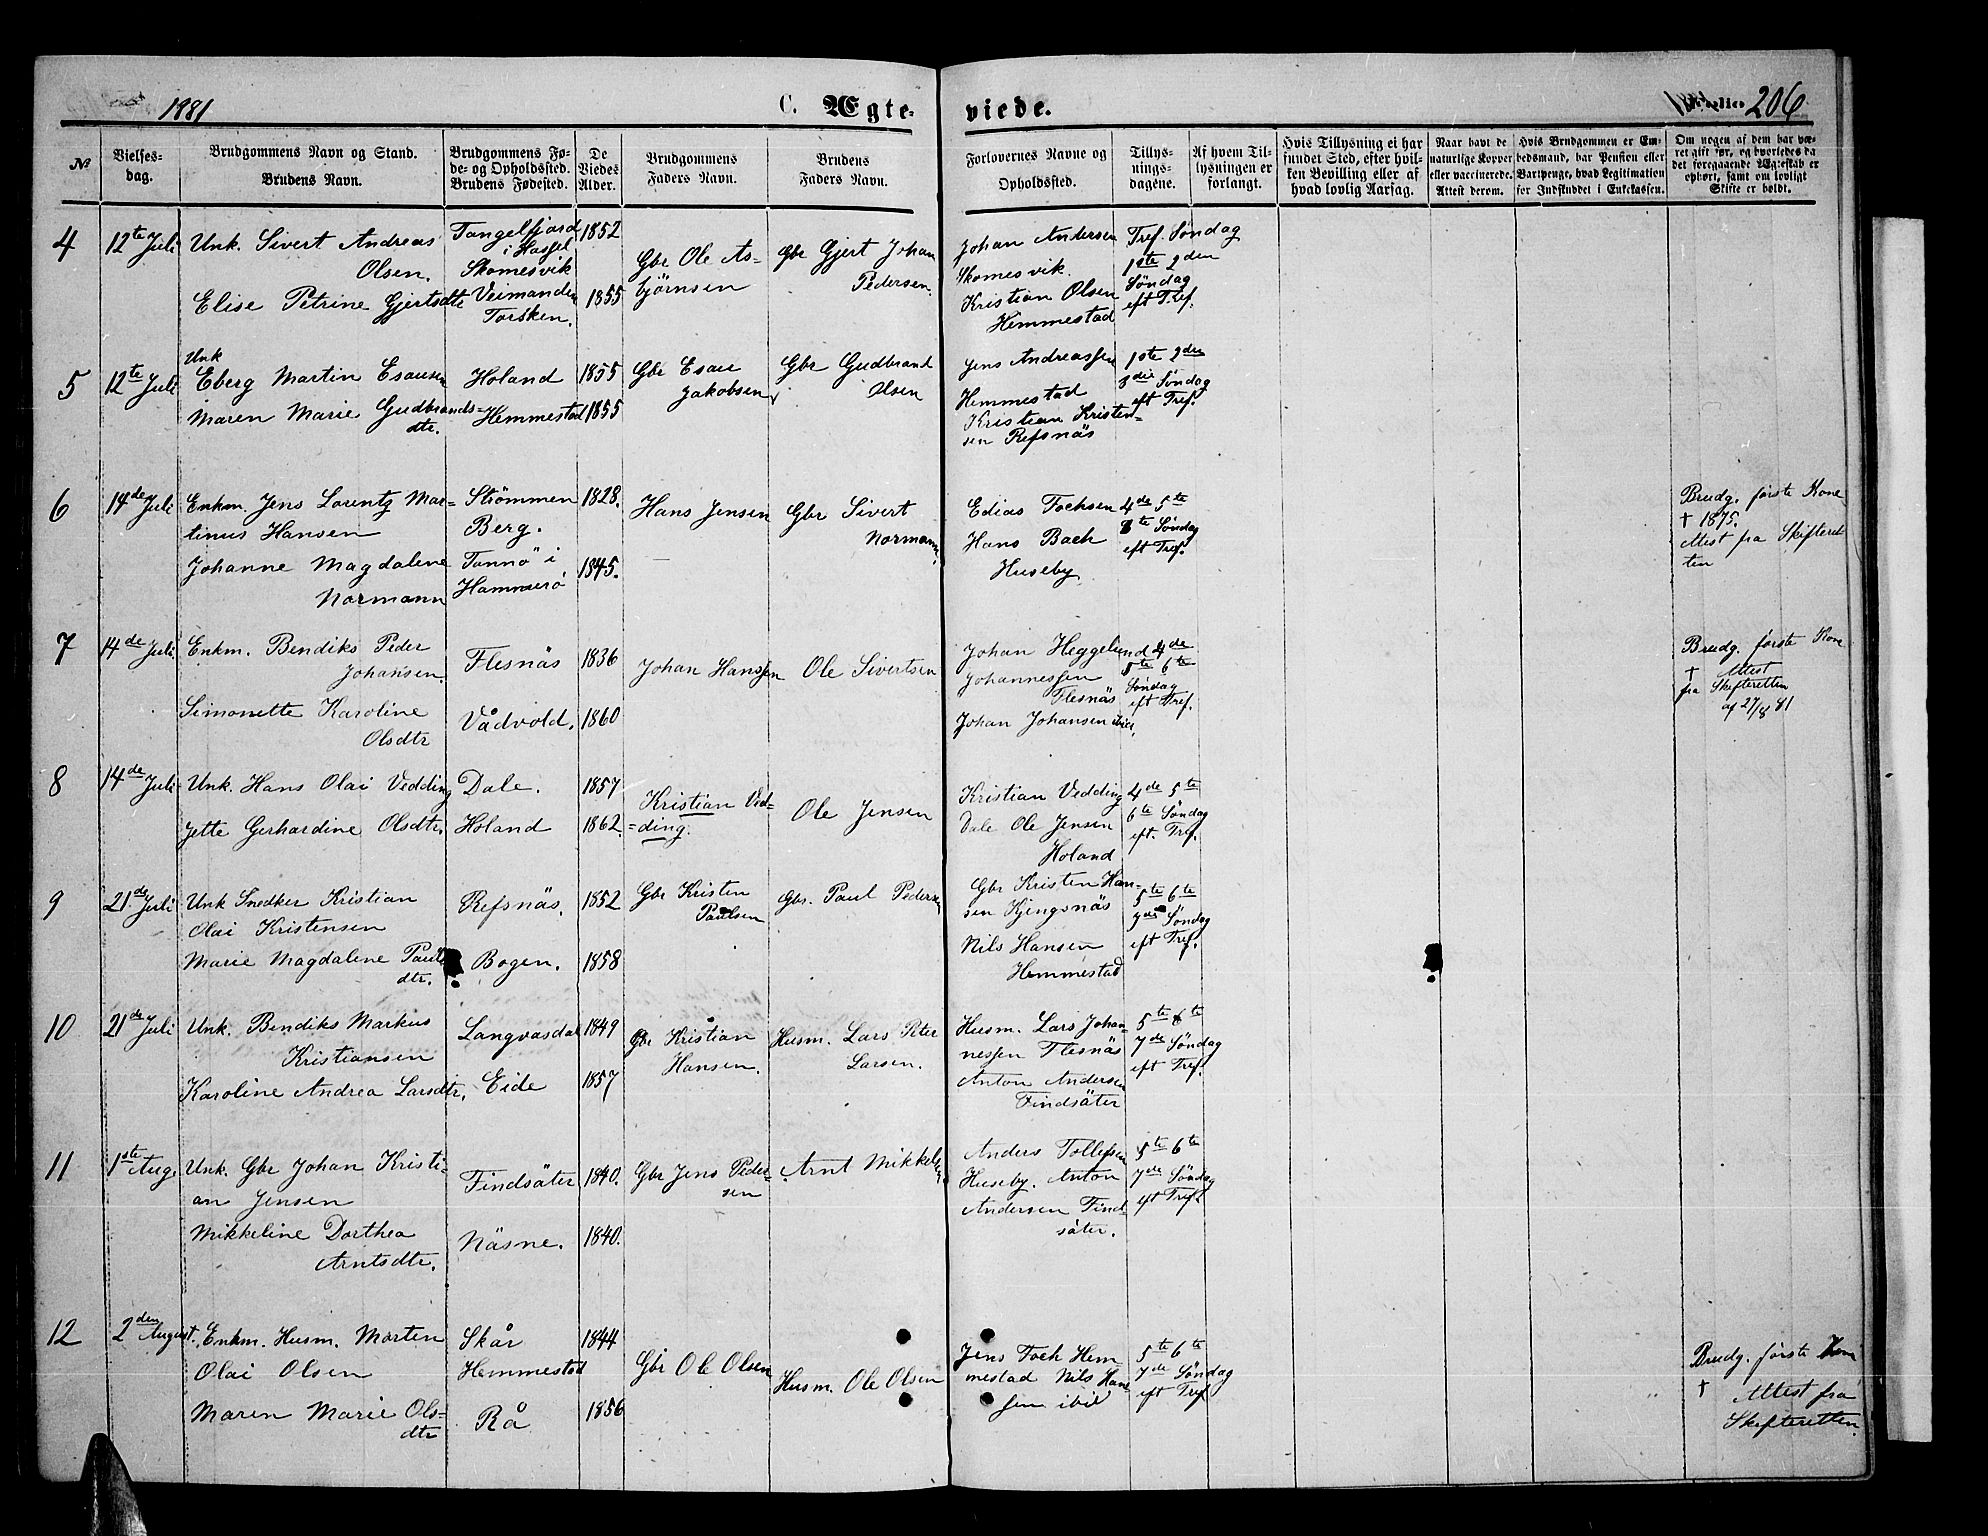 1881
C. Ægte-
viede.
Folio 206
No
Vielses-
dag.
Brudgommens Navn og Stand.
Brudens Navn.
Brudgommens Fø-
de- og Opholdssted.
Brudens Fødested.
De
Viedes
Alder.
Brudgommens
Faders Navn.
Brudens
Faders Navn.
Forlovernes Navne og
Opholdssted.
Tillys-
nings-
dagene.
Af hvem Til-
lysningen er
forlangt.
Hvis Tillysning ei har
fundet Sted, efter hvil-
ken Bevilling eller af
hvad lovlig Aarsag.
Naar havt de
naturlige Kopper
eller vaccinerede.
Attest derom.
Hvis Brudgommen er Em-
bedsmand, har Pension eller
Vartpenge, hvad Legitimation
for Indskuddet i Enkekassen.
Om nogen af dem har væ-
ret gift før, og hvorledes da
det foregaaende Ægteskab er
ophørt, samt om lovligt
Skifte er holdt.
4
12te Juli
Unk. Sivert Andreas
Olsen.
Elise Petrine Gjertsdtr
Tangelfjord
i Hassel
Skomesvik
Veimanden
Torsken.
1852
1855
Gbr Ole As-
bjørnsen
Gbr Gjert Johan
Pedersen.
Johan Andersen
Skomesvik.
Kristian Olsen
Hemmestad
Tref. Søndag
1ste 2den
Søndag
eft Tref.
5
12te Juli
Unk
Eberg Martin Esausen
Maren Marie Gudbrands-
dtr.
Holand
Hemmestad
1855
1855
Gbr Esau
Jakobsen
Gbr Gudbrand
Olsen
Jens Andreassen
Hemmestad
Kristian Kristen-
sen Refsnäs
1ste 2den
3die Søndag
eft Tref.
6
14de Juli
Enkm. Jens Lorentz Mar-
tinus Hansen
Johanne Magdalene
Normann
Strömmen
Berg.
Tannö i
Hammerö
1828.
1845.
Hans Jensen
Gbr Sivert
Normann
Edias Tochsen
Hans Bach
Huseby
4de 5te
6te Søndag
eft Tref.
Brudg. første Kone
† 1875.
Attest fra Skifteret-
ten
7
14de Juli
Enkm. Bendiks Peder
Johansen.
Simonette Karoline
Olsdtr
Flesnäs
Vådvold.
1836
1860
Johan Hanssen
Ole Sivertsen
Johan Heggelund
Johannessen
Flesnäs
Johan Johansen ibid.
4de
5te 6te
Søndag
eft Tref.
Brudg. første Kone
† Attest
fra Skifteretten
af 27/8 81
8
14de Juli
Unk. Hans Olai Vedding
Jette Gerhardine Olsdtr.
Dale.
Holand
1857
1862.
Kristian Ved-
=ding.
Ole Jensen
Kristian Vedding
Dale Ole Jensen
Holand
4de 5te
6te Søndag
eft. Tref.
9
21de Juli
Unk Snedker Kristian
Olai Kristensen
Marie Magdalene Pauls
dtr.
Refsnäs.
Bogen.
1852
1858
Gbr Kristen
Paulsen
Gbr. Paul Pedersen
Gbr Kristen Han-
sen Kjengsnäs
Nils Hansen
Hemmestad
5te 6te
7de Søndag
eft Tref.
10
21de Juli
Unk. Bendiks Markus
Kristiansen
Karoline Andrea Larsdtr.
Langvasdal
Eide
1849
1857
Gbr Kristian
Hansen.
Husm. Lars Peter
Larsen.
Husm. Lars Johan-
nessen Flesnäs
Anton Andersen
Findsäter
5te 6te
7de Søndag
eft Tref.
11
1ste Aug.
Unk. Gbr Johan Kristi-
an Jensen
Mikkeline Dorthea
Arntsdtr.
Findsäter
Näsne.
1840.
1840.
Gbr Jens Peder-
sen
Arnt Mikkelsen
Anders Tollefsen
Huseby. Anton
Andersen Find-
säter.
5te 6te
7de Søndag
eft Tref.
12
2den August.
Enkm. Husm. Morten
Olai Olsen
Maren Marie Ols-
dtr
Skår
Hemmestad
Rå
1844
1856
Gbr Ole Olsen
Husm. Ole Olsen
Jens Toch Hem-
mestad Nils Han-
sen ibid
5te 6te
7de Søndag
eft Tref.
Brudg. første Kone
† Attest fra
Skifteretten.